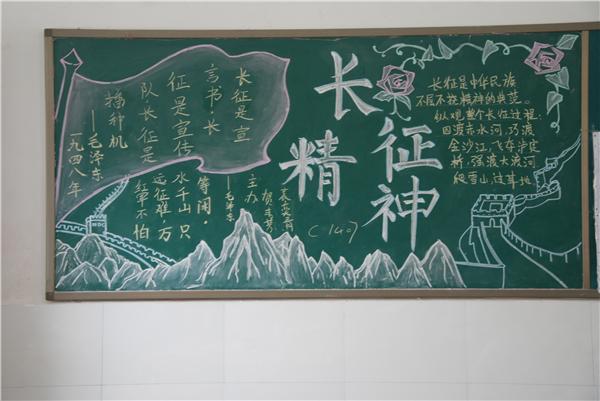 长征是宣
言书,长
征是宣传
队长征是
播种机
——毛泽东
一九四八年
红军不怕
远征难,万
水千山只
等闲。
—毛泽东
主办
长征
精神
(140)
长征是中华民族
不屈不挠精神的典范。
纵观整个长征过程:
四渡赤水河,巧渡
金沙江,飞夺泸定
桥,强渡大渡河
爬雪山,过草地